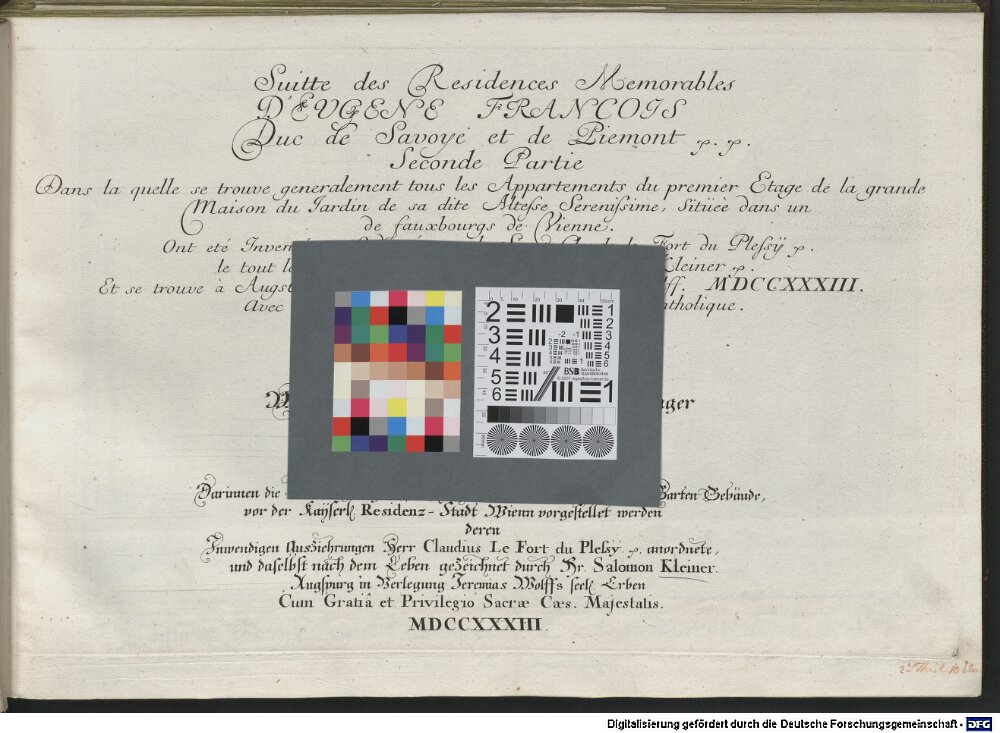 Suitte des Residences Memorables
D'EUGENE FRANCOIS
Duc de Savoye et de Piemont p. p.
Seconde Partie
Dans la quelle se trouve generalement tous les Appartements du premier Etage de la grande
Maison du Jardin de sa dite Altesse Serenissime, Sitüèe dans un
de fauxbourgs de Vienne.
Ont eté Fort du Plessÿ p.
le tout Kleiner p.
Et se trouve à MDCCXXXIII.
Avec
Darinnen die Garten Gebäude,
vor der Kayserl Residenz-Stadt Wienn vorgestellet werden
deren
Inwendigen Ausziehrungen Herr Claudius Le Fort du Plessy p. anordnete,
und daselbst nach dem Leben gezeichnet durch Hr. Salomon Kleiner.
Augspurg in Verlegung Jeremias Wolff's seel Erben
Cum Gratiâ et Privilegio Sacræ Cæs. Majestatis.
MDCCXXXIII
2 1
3 2
4 3
5 4
6 5
6
-2 -1
BSB
1
Digitalisierung gefördert durch die Deutsche Forschungsgemeinschaft - DFG